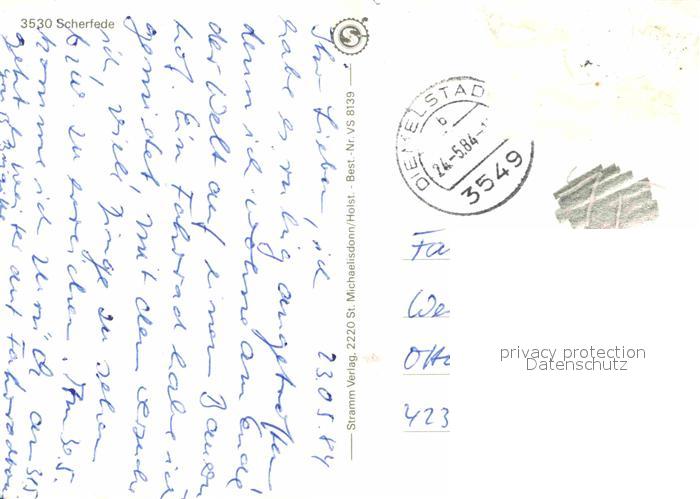 3530 Scherfede
23.05.84
Ihr Lieben, ich
habe es ruhig angetroffen
denn ich wohne am Ende
der Welt auf einem Bauern
hof. Ein Fahrrad habe ich
gemietet, mit dem versuche
ich, viele Dinge zu sehen
bzw. zu erreichen. Am 30.5.
komme ich zurück, am 31.5
geht es weiter auf Fahrradtour
Stramm Verlag, 2220 St. Michaelisdonn/Holst. - Best.-Nr. VS 8139
DIEMELSTADT
b
24.-5.84-
3549
Fa
We
Ott
423
privacy protection
Datenschutz